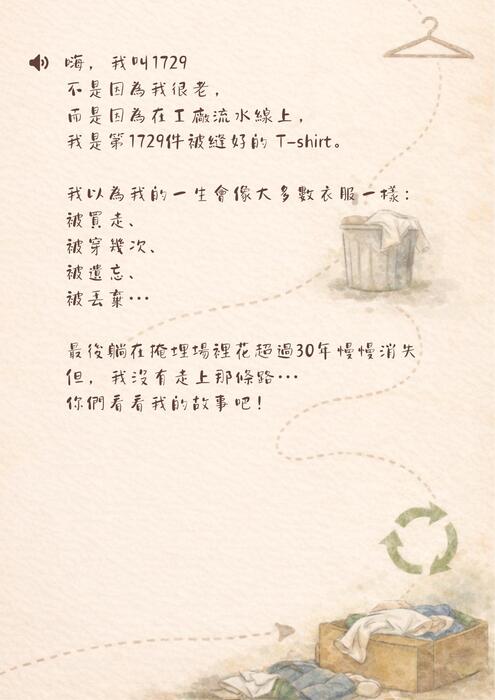 嗨，我叫1729
不是因為我很老，
而是因為在工廠流水線上，
我是第1729件被縫好的 T-shirt。
我以為我的一生會像大多數衣服一樣：
被買走、
被穿幾次、
被遺忘、
被丟棄…
最後躺在掩埋場裡花超過30年慢慢消失
但，我沒有走上那條路…
你們看看我的故事吧！